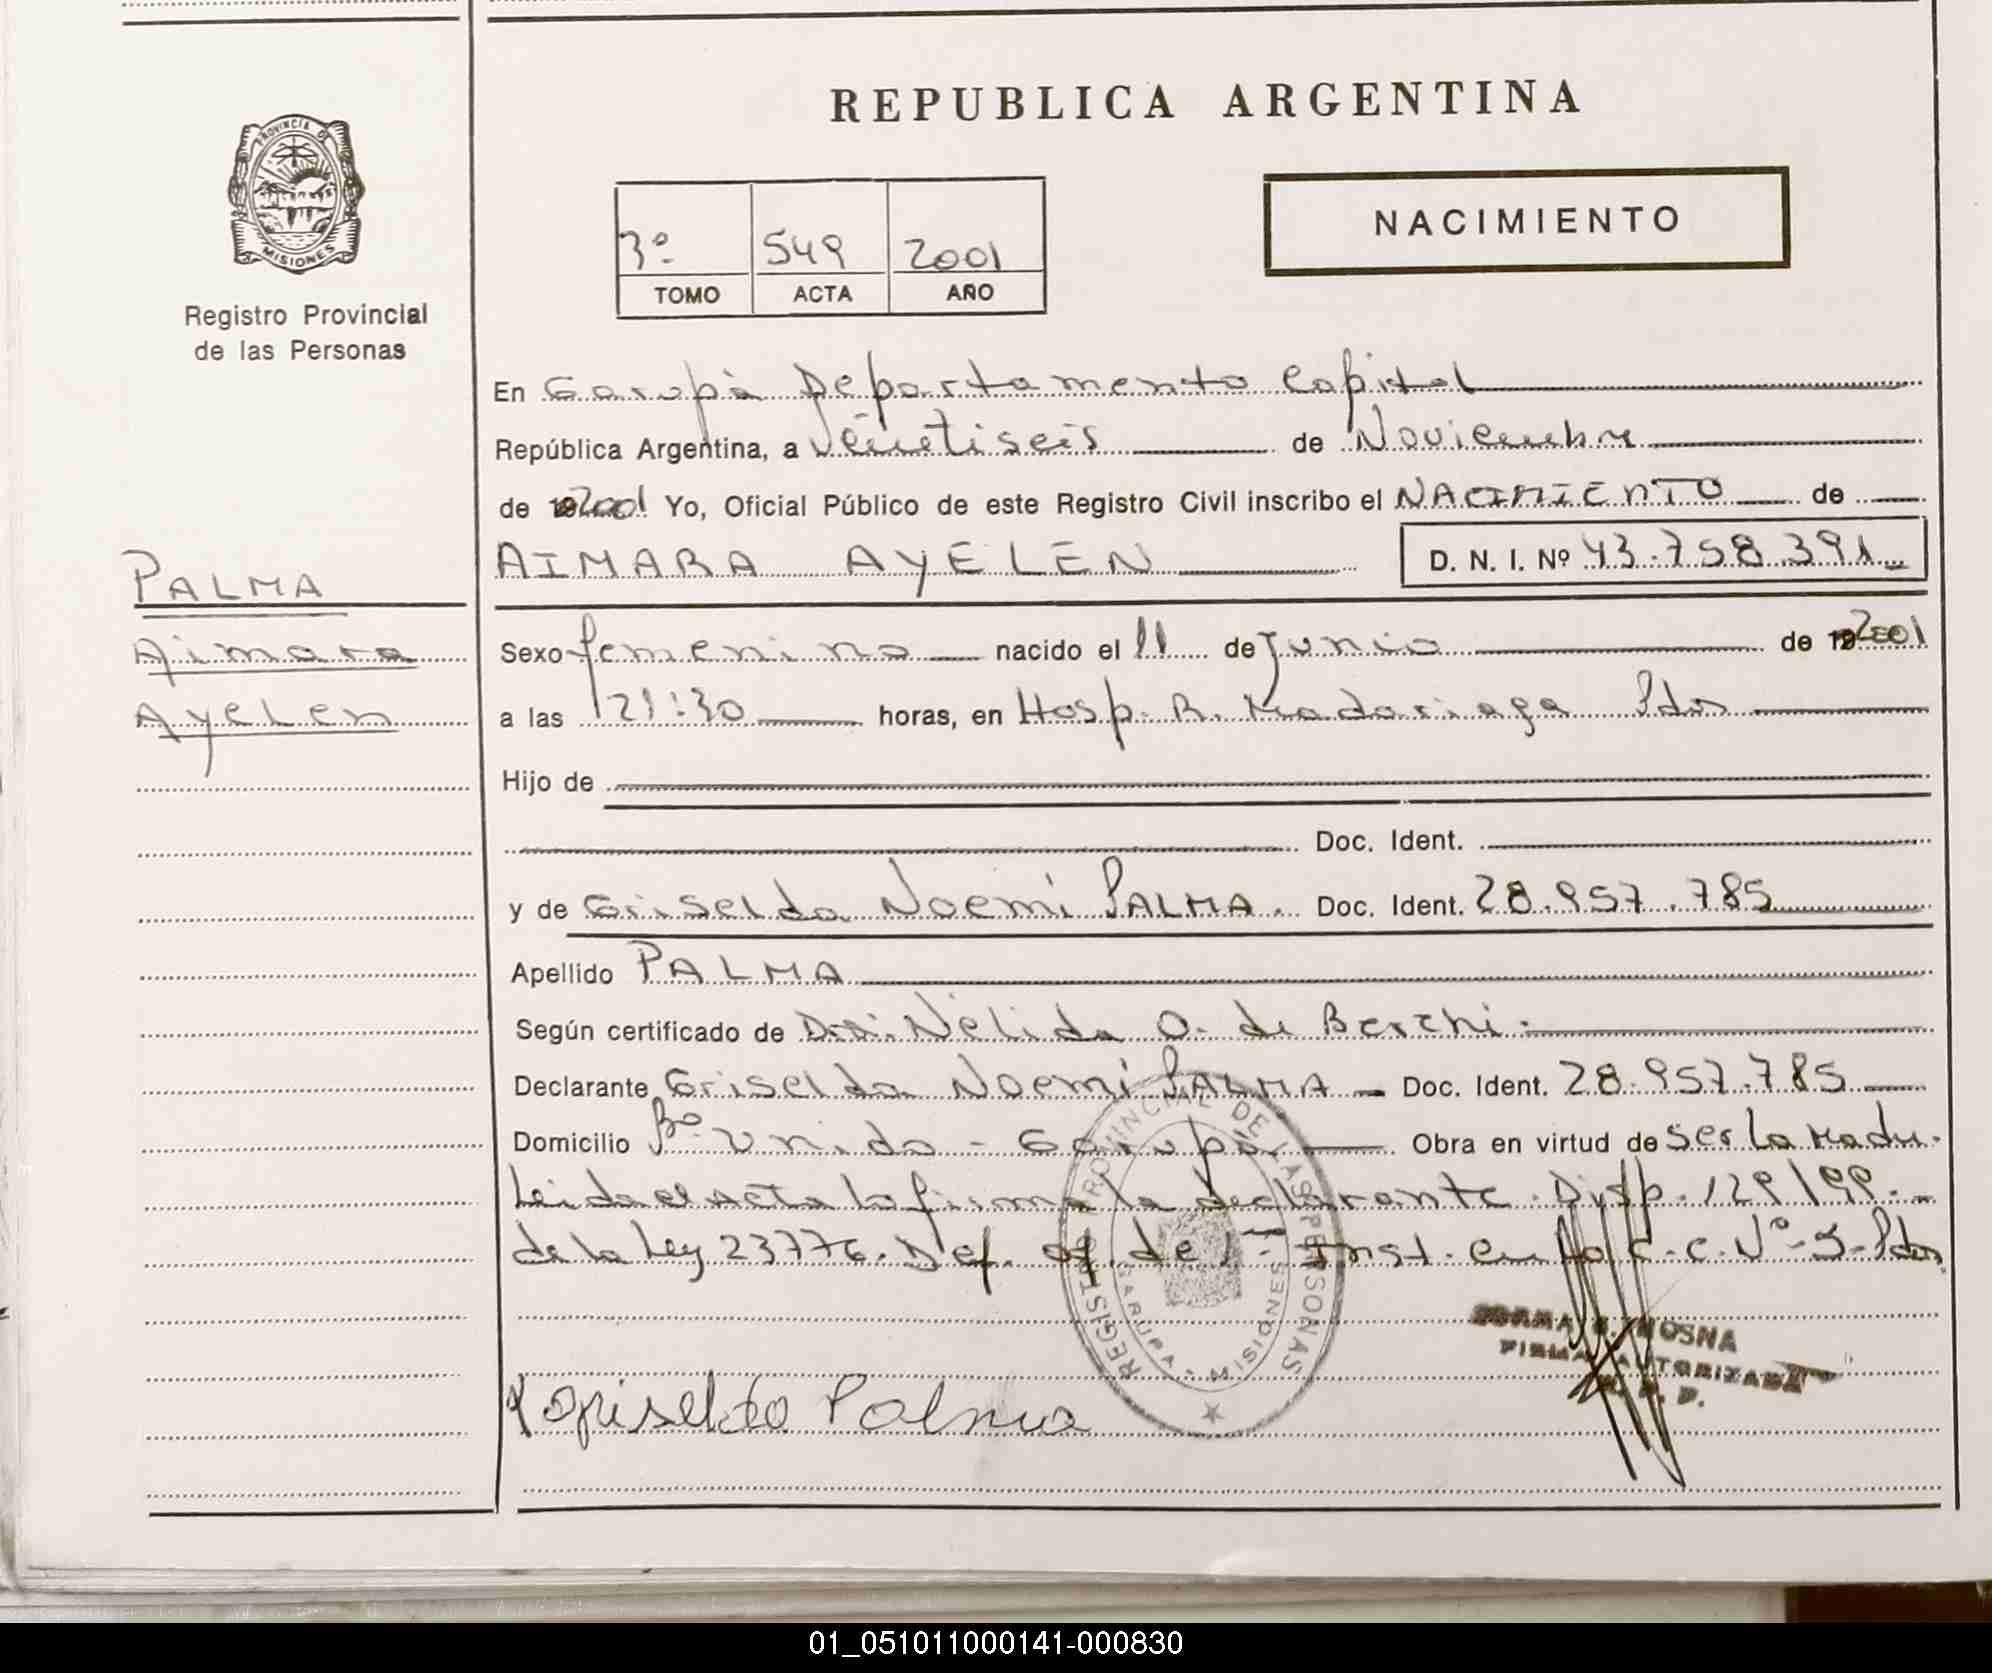 REPUBLICA ARGENTINA
PROVINCIA DE
MISIONES
Registro Provincial
de las Personas
NACIMIENTO
3º 549 2001
TOMO ACTA AÑO
En Garupà Departamento Capital
República Argentina, a Veintiseis de Noviembre
de 2001 Yo, Oficial Público de este Registro Civil inscribo el NACIMIENTO de
AIMARA AYELEN D. N. I. Nº 43.758.391
PALMA
Aimara
Ayelen
Sexo femenino nacido el 11 de Junio de 2001
a las 21:30 horas, en Hosp. R. Madariaga Pdas
Hijo de
Doc. Ident.
y de Griselda Noemi PALMA. Doc. Ident. 28.957.785
Apellido PALMA
Según certificado de Dra. Nélida O. de
Declarante Griselda Noemi PALMA Doc. Ident. 28.957.785
Domicilio Bº Unido - Garupà Obra en virtud de ser la Madre.
Leida el Acta la firma la declarante. Disp. 129/99.
de la Ley 23776. Def. of. de 1º Inst. en lo C. C. Nº 5 Pdas
REGISTRO PROVINCIAL DE LAS PERSONAS
GARUPA - MISIONES
NORMA MOSNA
FIRMA AUTORIZADA
R. P.
x Griselda Palma
01_051011000141-000830